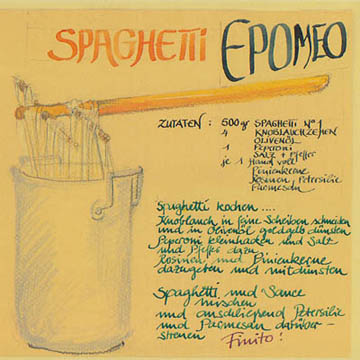 SPAGHETTI EPOMEO
ZUTATEN : 500gr SPAGHETTI N°1
4 KNOBLAUCHZEHEN
OLIVENÖL
1 Peperoni
SALZ + Pfeffer
je 1 Hand voll
Pinienkerne
Rosinen, Petersilie
Parmesan
Spaghetti kochen ....
Knoblauch in feine Scheiben schneiden
und in Olivenöl goldgelb dünsten
Peperoni kleinhacken und Salz
und Pfeffer dazu
Rosinen und Pinienkerne
dazugeben und mitdünsten
Spaghetti und Sauce
mischen
und anschließend Petersilie
und Parmesan darüber-
streuen Finito!